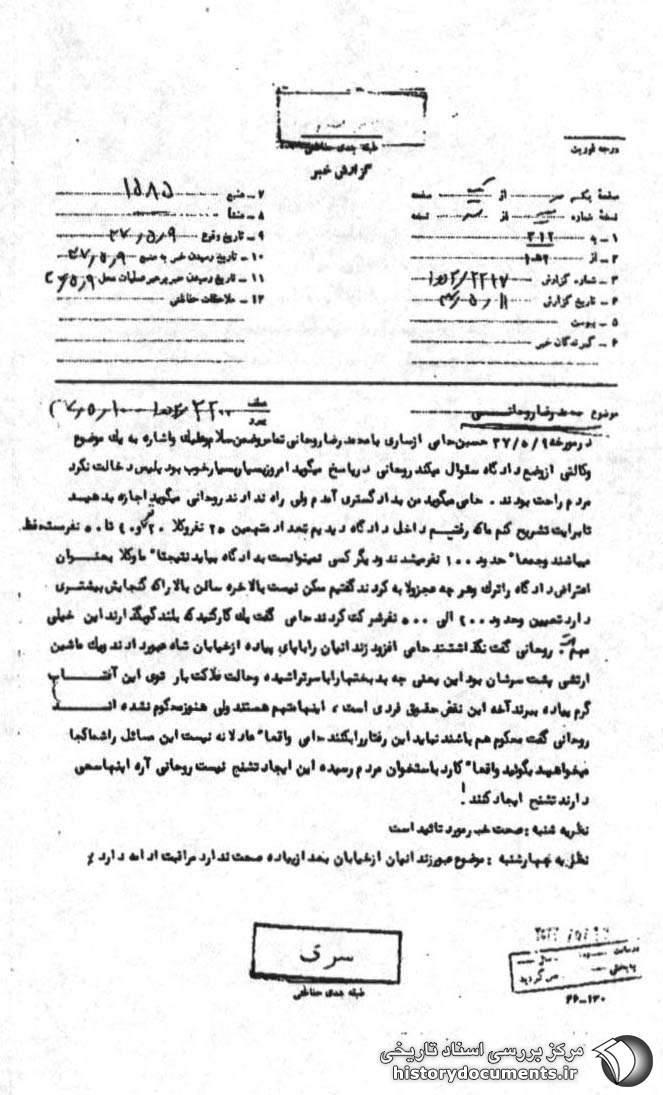 طبقه بندی حفاظتی
درجه فوریت
گزارش خبر
صفحه یک از یک صفحه
نسخه شماره از نسخه
۱ – به ۳۱۲
۲ – از
۳ – شماره گزارش
۴ – تاریخ گزارش
۵ – پیوست
۶ – گیرندگان خبر
۷ – منبع ۱۵۸۵
۸ – منشأ
۹ – تاریخ وقوع ۳۷٫۵٫۹
۱۰ – تاریخ رسیدن خبر به منبع ۳۷٫۵٫۹
۱۱ – تاریخ رسیدن خبر برهبر عملیات محل
۱۲ – ملاحظات حفاظتی
موضوع محمدرضا روحانی
درمورخه ۳۷/۵/۹ حسین حامی ازساری با محمدرضا روحانی تماس وضمن سلام وعلیک واشاره به یک موضوع
وکالتی ازوضع دادگاه سئوال میکند روحانی درپاسخ میگوید امروز بسیار بسیار خوب بود پلیس دخالت نکرد
مردم راحت بودند . حامی میگوید من بدادگستری آمدم ولی راه ندادند روحانی میگوید اجازه بدهید
تابرایت تشریح کنم ماکه رفتیم داخل دادگاه دیدیم تعداد متهمین ۲۵ نفر وکلا ۲۰ و ۴۰ تا ۵۰ نفر مستحفظ
میباشند وجمعا" حدود ۱۰۰ نفر میشدند ودیگر کسی نمیتوانست بدادگاه بیاید نتیجتا" ما وکلا بعنوان
اعتراض دادگاه راترک وهر چه عجز ولابه کردند گفتیم ممکن نیست بالاخره سالن بالا راکه گنجایش بیشتری
دارد تعیین وحدود ۴۰۰ الی ۵۰۰ نفر شرکت کردند حامی گفت یک کارکنید که بلندگو بگذارند این خیلی
مهم است . روحانی گفت نگذاشتند حامی افزود زندانیان را باپای پیاده ازخیابان شاه عبور دادند ویک ماشین
ارتشی پشت سرشان بود این یعنی چه بدبختها را با سر تراشیده وحالت فلاکت بار توی این آفتاب
گرم پیاده ببرند آخه این نقض حقوق فردی است ، اینها متهم هستند ولی هنوز محکوم نشده اند
روحانی گفت محکوم هم باشند نباید این رفتار را بکنند حامی واقعا" عادلانه نیست این مسائل را شما کجا
میخواهید بگوئید واقعا" کارد باستخوان مردم رسیده این ایجاد تشنج نیست روحانی آره اینها سعی
دارند تشنج ایجاد کنند !
نظریه شنبه : صحت خبر مورد تائید است
نظریه چهارشنبه : موضوع عبور زندانیان ازخیابان بعد از پیاده صحت ندارد مراقبت ادامه دارد ٪
سری
طبقه بندی حفاظتی
۴۶-۱۳۰
مرکز بررسی اسناد تاریخی
historydocuments.ir